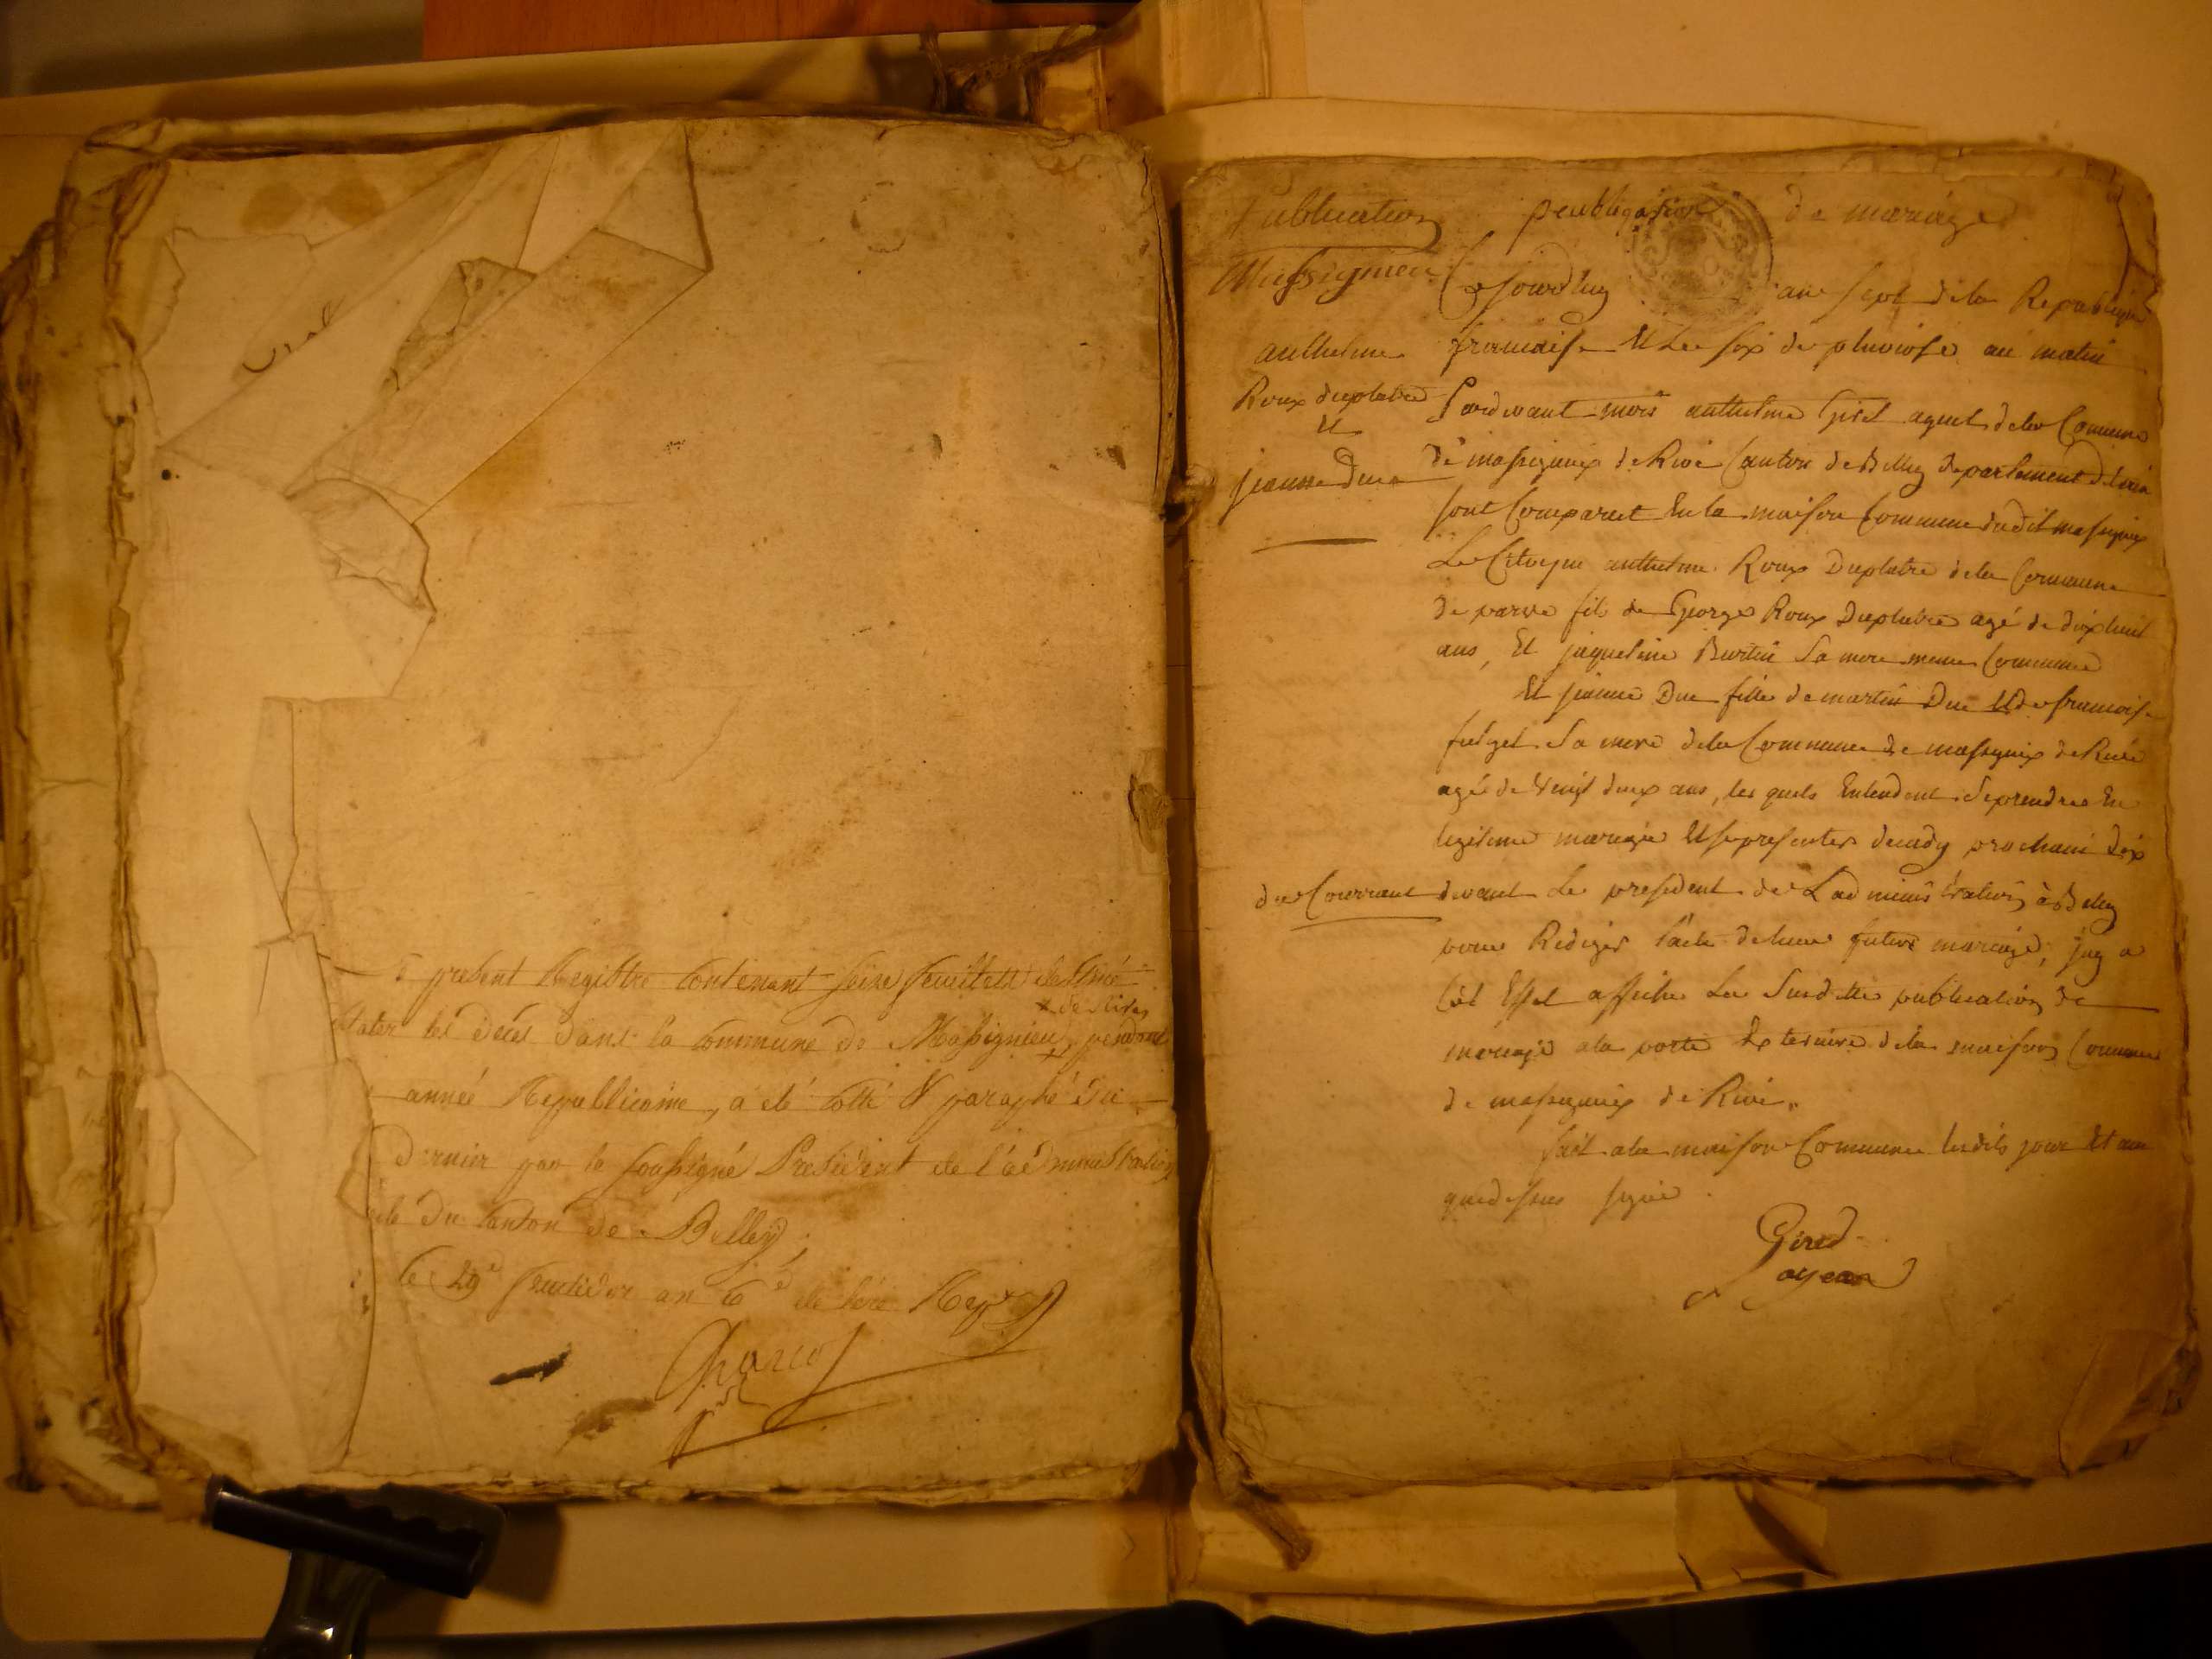 present Registre contenant seize feuillets destiné
* de Rives
les décés dans la commune de Massignieu * pendant
année Republicaine, a été cotté & paraphé du
dernier par le soussigné Président de l'administration
du canton de Belley,
le 29e fructidor an 6e de l'ère Rep.
Publication
Massignieu
anthelme
Roux duplatre
Et
jeanne Duc
peubligasion de mariage
Cejourdhuy an sept dela Republique
francaise Et Le six de pluviose au matin
Pardevant mois anthelme Girel agent dela Commune
de massignieux de Rive Canton de Belley departement delain
sont Comparut En la maison Commune dudit massignieux
Le Citoyen anthelme Roux Duplatre dela Commune
de parve fils de George Roux Duplatre agé de dixhuit
ans, Et jaqueline Burtin Sa mere meme Commune
Et jeanne Duc fille de martin Duc Et de francoise
Sa mere dela Commune de massignieux de Rive
agé de Vingt deux ans, les quels Entendent Se prendre En
legitime mariage Et se presenter decady prochain dix
du Courrant devant Le president de Ladministration à Belley
pour Rediger l'acte de leur futur mariage, jay a
Cet Effet affiche La Susditte publication de
mariage a la porte Exterieure dela maison Commune
de massignieux de Rive.
fait a la maison Commune lesdits jour Et an
quedessus signé.
Girel
agent